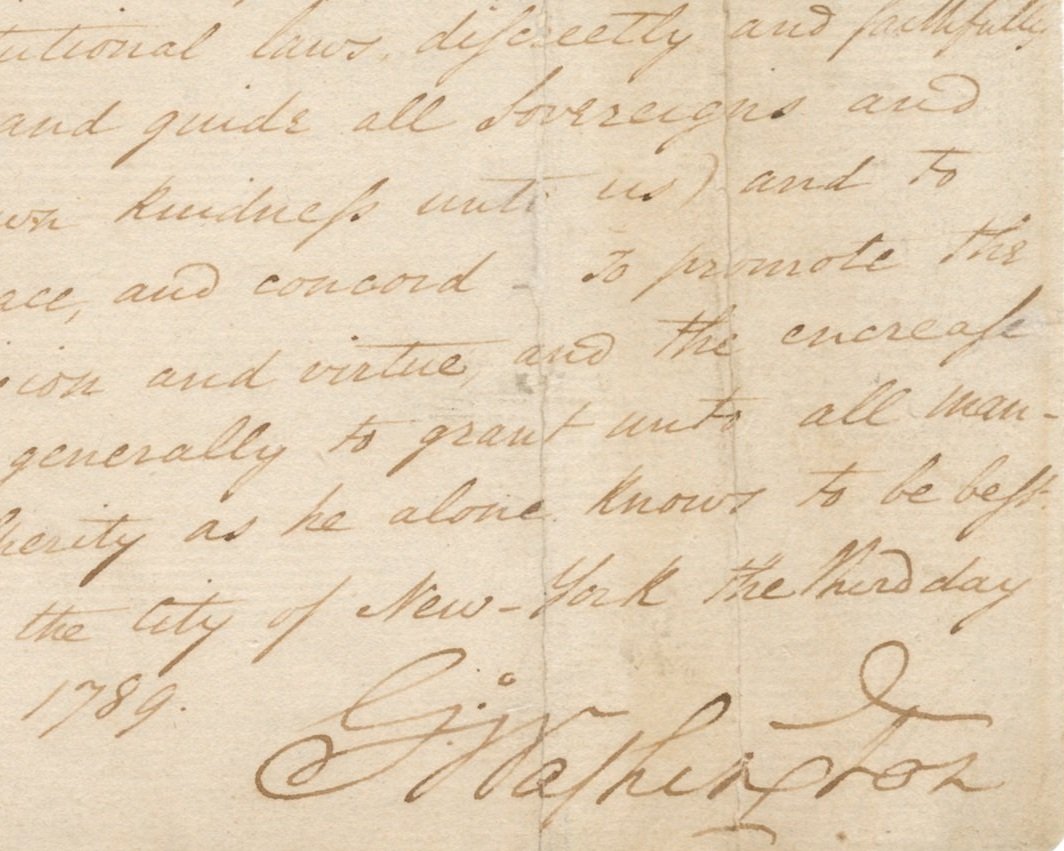 tutional laws, discreetly and faithfully
and guide all Sovereigns and
wn kindness unto us) and to
ace, and concord - To promote the
ion and virtue, and the encrease
generally to grant unto all man-
perity as he alone knows to be best.
the City of New-York the third day
1789.
Go: Washington